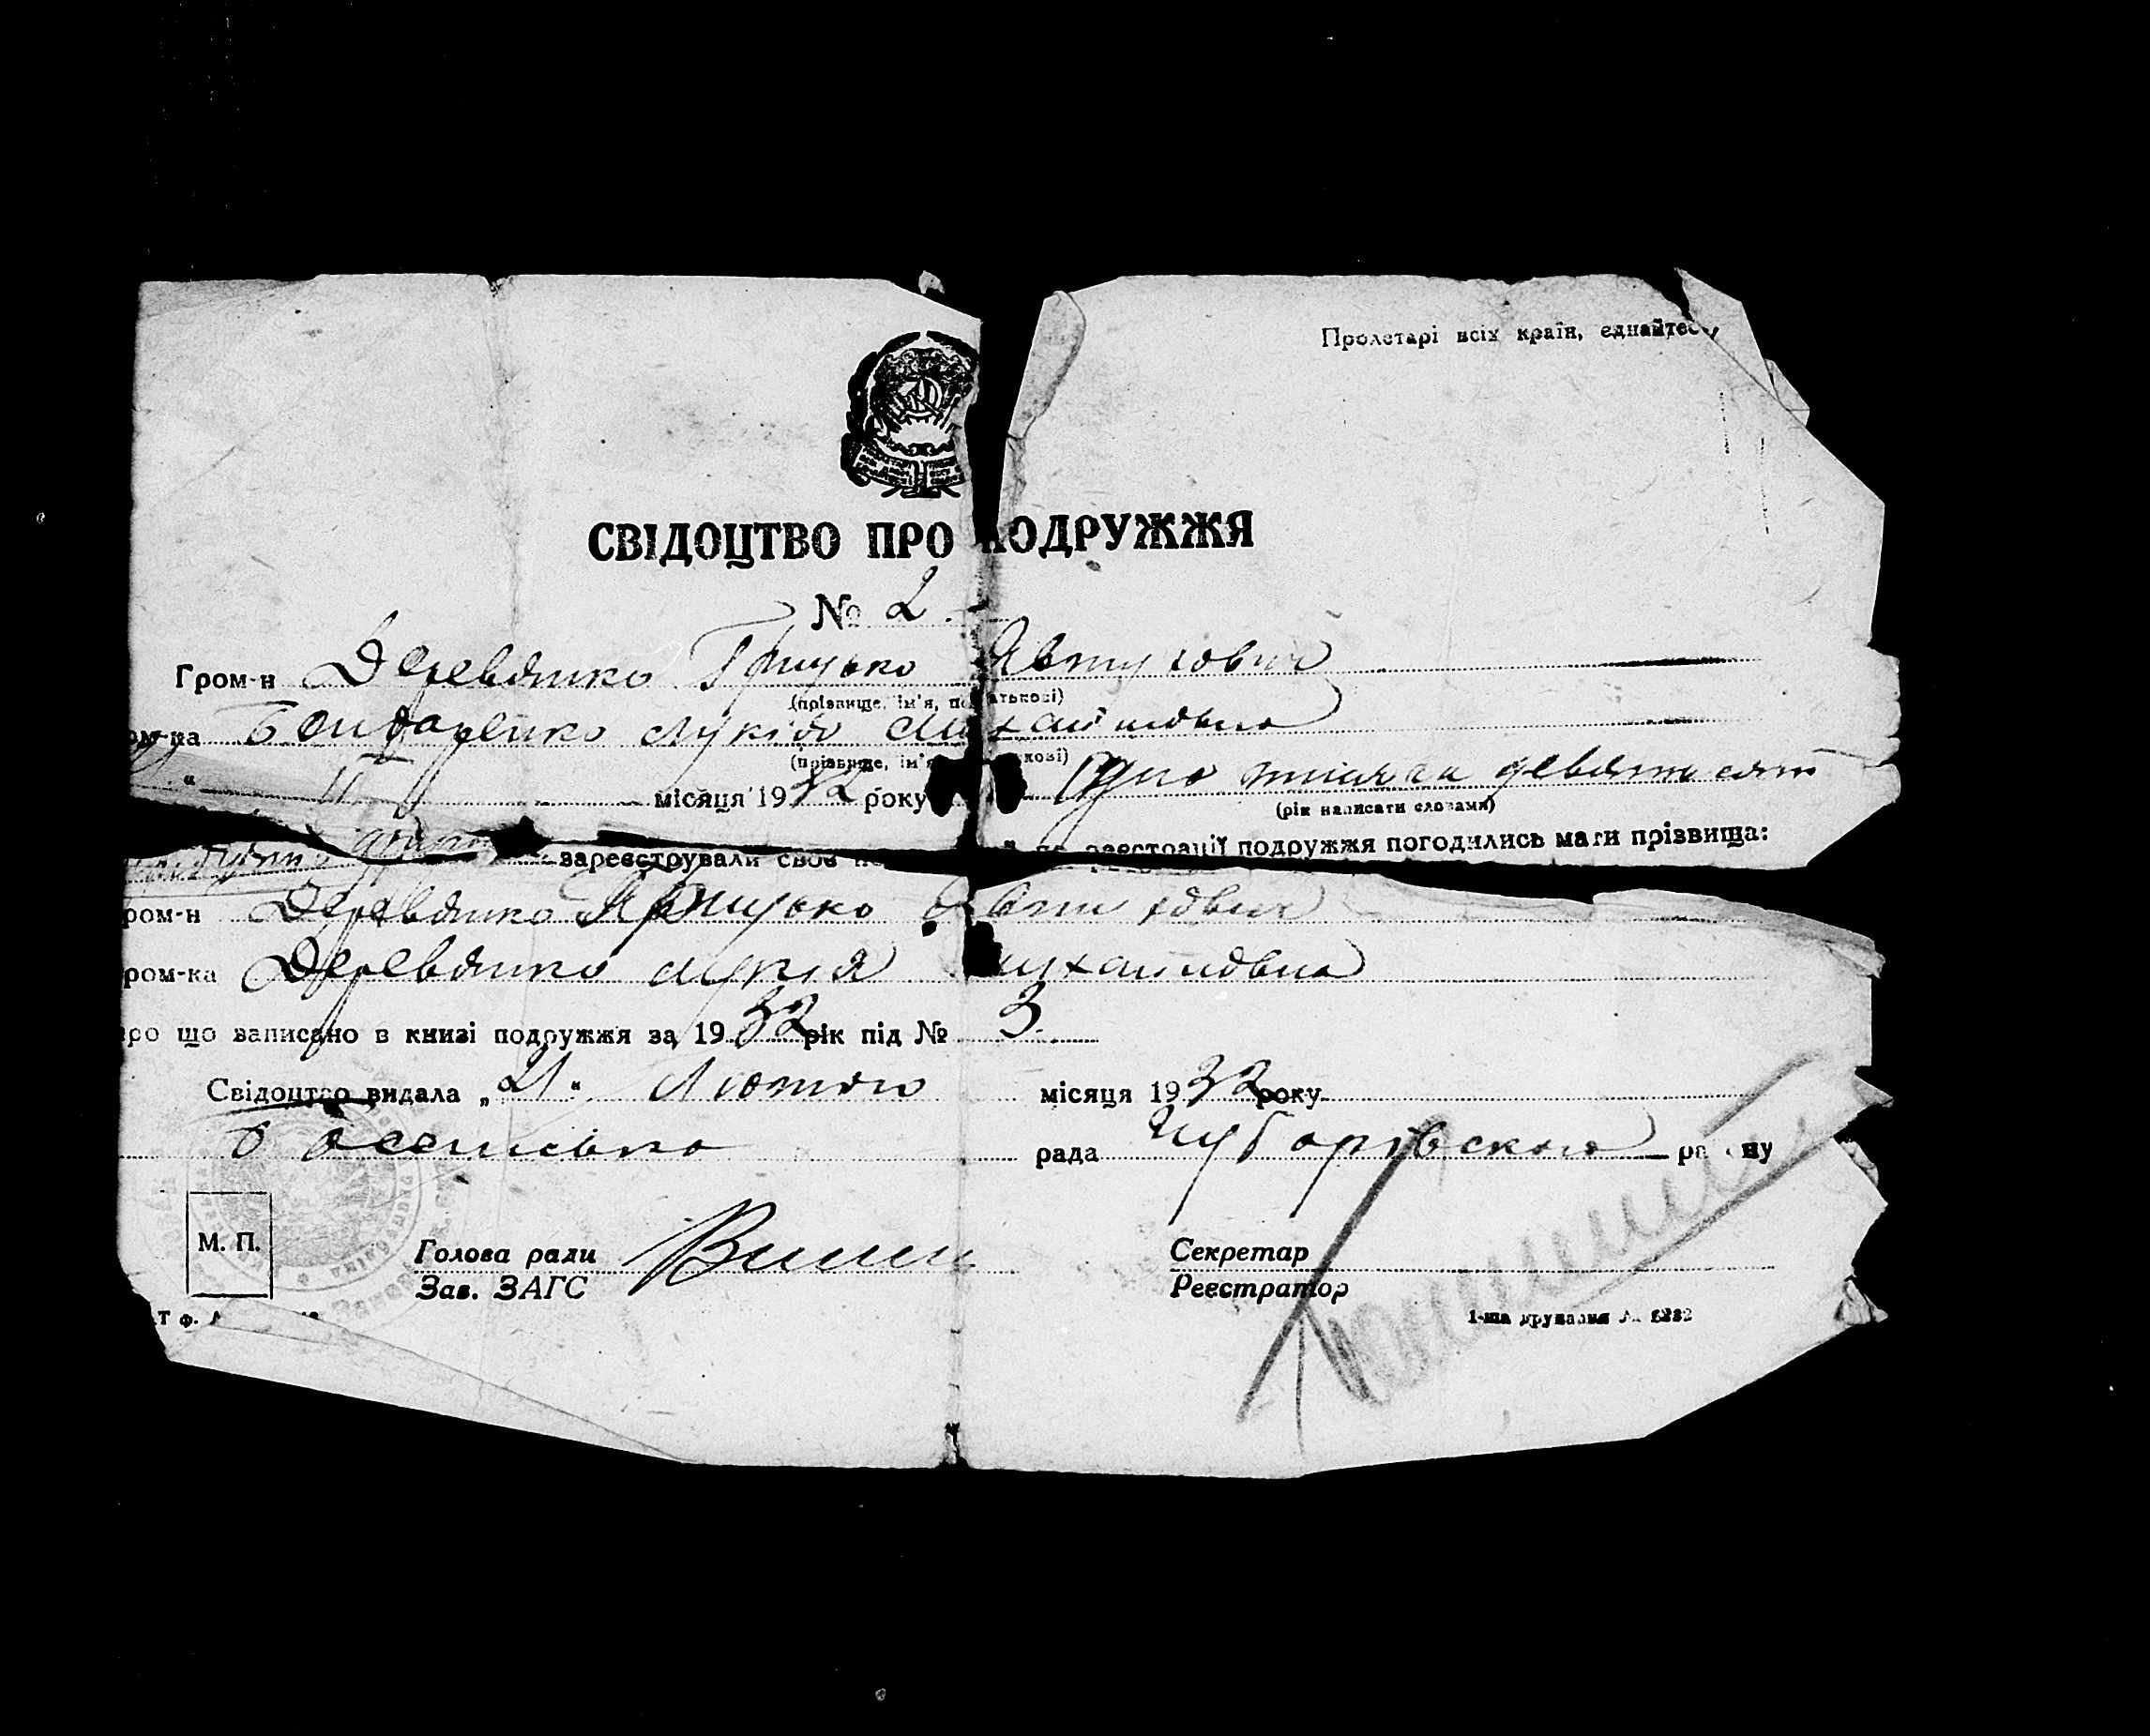 Пролетарі всіх країн, єднайтесь
СВІДОЦТВО ПРО ПОДРУЖЖЯ
№ 2.
Гром-н Деревянко Грицько Явтухович
(прізвище, ім'я, по батькові)
ом-ка Бондаренко Лукія Михайловна
(прізвище, ім'я кові)
" II місяця 1932 року Одно тисяча девятьсот
(рік написати словами)
зареєстрували своє по реєстрації подружжя погодились мати прізвища:
ром-н Деревянко Грицько Явтухович
ром-ка Деревянко Лукія Михайловна
про що записано в книзі подружжя за 1932 рік під № 3.
Свідоцтво видала „21" Лютого місяця 1932 року
рада Чубарівського району
М. П.
Голова ради
Зав. ЗАГС
Секретар
Реєстратор
Т ф.
1-ша друкарня